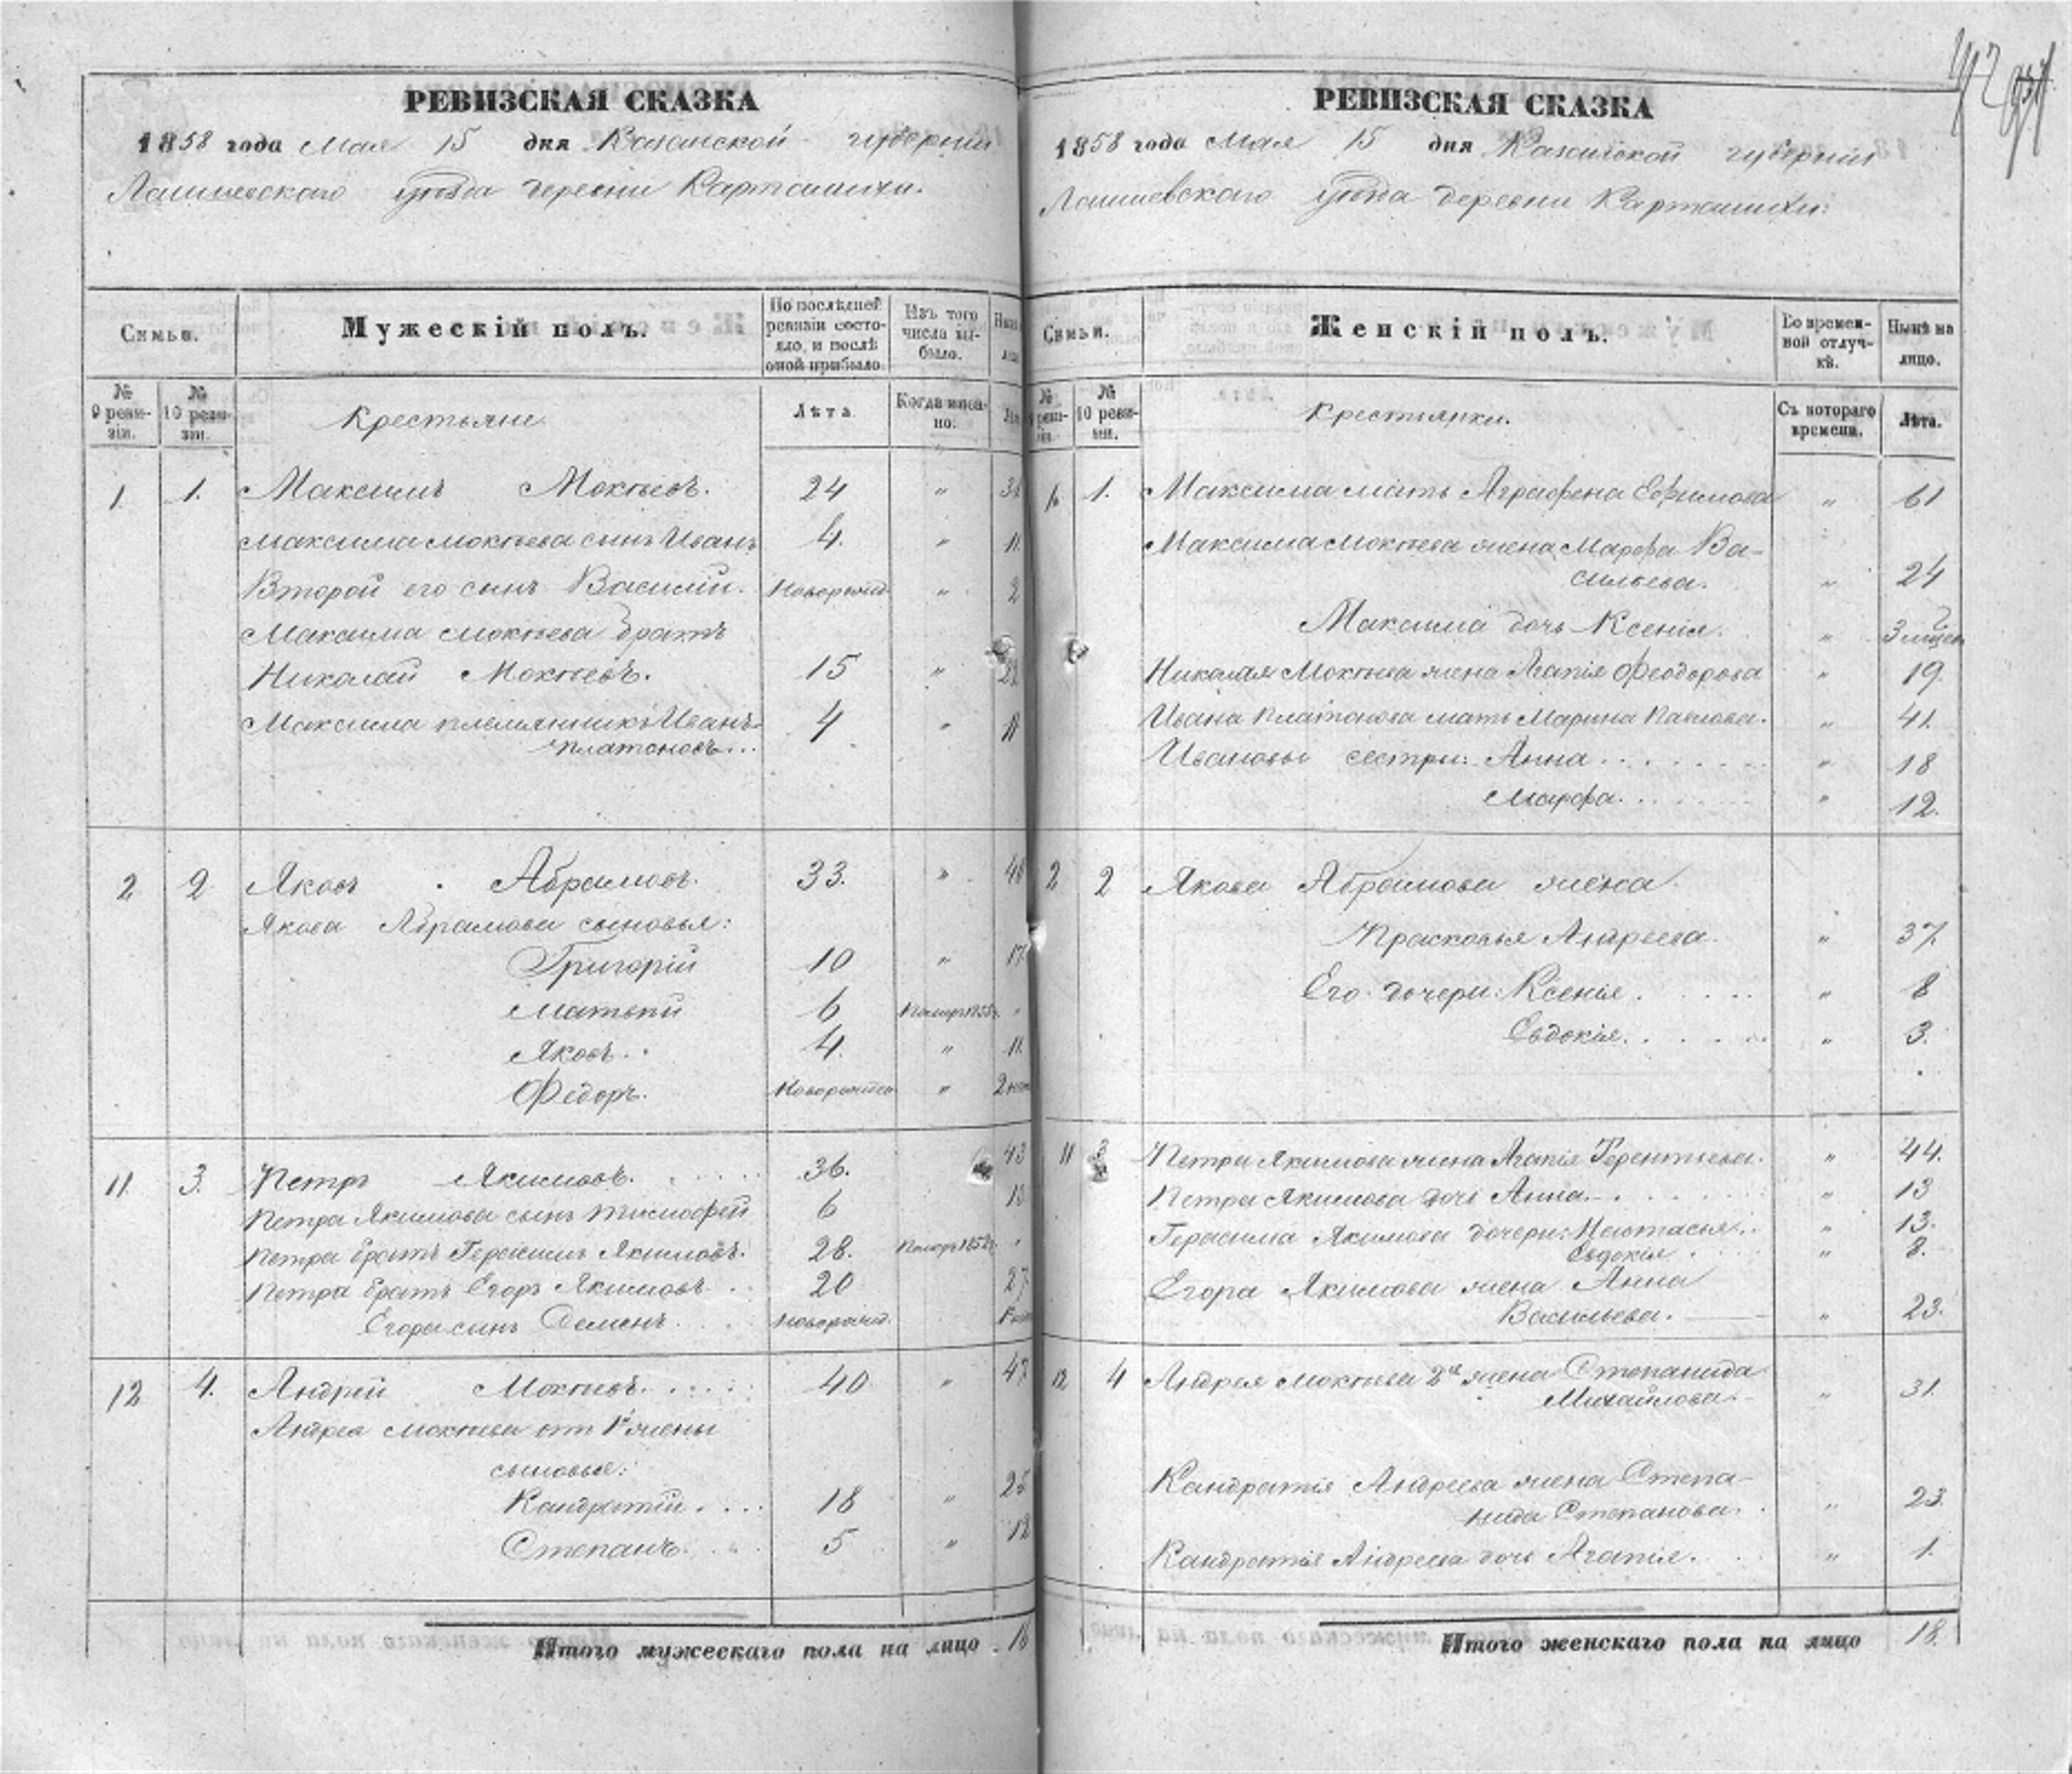 РЕВИЗСКАЯ СКАЗКА
1858 года Мая 15 дня Казанской губернии
Лаишевского уѣзда деревни Карташихи.
Семьи. Мужескій полъ. По послѣдней ревизіи состояло, и послѣ оной прибыло. Изъ того числа выбыло.
№ 9 ревизіи. № 10 ревизіи. Крестьяне Лѣта. Когда именно:
1. 1. Максимъ Мокѣевъ. 24 "
Максима Мокѣева сынъ Иванъ 4. " 11.
Второй его сынъ Василій. Новорожд. " 2
Максима Мокѣева братъ
Николай Мокѣевъ. 15 " 22
Максима племянникъ Иванъ 4 " 11
Платоновъ...
2 2 Яковъ Абрамовъ. 33. " 40
Якова Абрамова сыновья:
Григорій 10 " 17.
Матвѣй 6 "
Яковъ. 4. " 11.
Федоръ. "
11. 3. Петръ Якимовъ. 36. 43
Петра Якимова сынъ Тимофей 6 13
Петра братъ Герасимъ Якимовъ. 28. "
Петра братъ Егоръ Якимовъ 20 27
Егора сынъ Деменъ. Новорожд.
12 4. Андрей Мокѣевъ. 40 " 47
Андрея Мокѣева отъ 1й жены
сыновья:
Кандратій. 18 " 25
Степанъ. 5 " 12
Итого мужескаго пола на лицо 16
РЕВИЗСКАЯ СКАЗКА
1858 года Мая 15 дня Казанской губерніи
Лаишевского уѣзда деревни Карташихи:
Семьи. Женскій полъ. Во временной отлучкѣ. Нынѣ на лицо.
№ 9 ревизіи. № 10 ревизіи. Крестьянки. Съ котораго времени. Лѣта.
1. 1. Максима мать Аграфена Ефимова " 61
Максима Мокѣева жена Марфа Ва-
сильева. " 24
Максима дочь Ксенія. "
Николая Мокѣева жена Агапія Феодорова " 19.
Ивана Платонова мать Марина Павлова. " 41.
Ивановы сестры: Анна " 18
Марфа. " 12.
2 2 Якова Абрамова жена
Прасковья Андреева. " 37.
Его дочери: Ксенія. " 8
Евдокія. " 3.
11 3 Петра Якимова жена Агапія Терентьева. " 44.
Петра Якимова дочь Анна. " 13
Герасима Якимова дочери: Настасья. " 13.
Евдокія " 8.
Егора Якимова жена Анна
Васильева. " 23.
12 4 Андрея Мокѣева 2я жена Степанида
Михайлова " 31.
Кандратія Андреева жена Степа-
нида Степанова. " 23.
Кандратія Андреева дочь Агапія. " 1.
Итого женскаго пола на лицо 18.